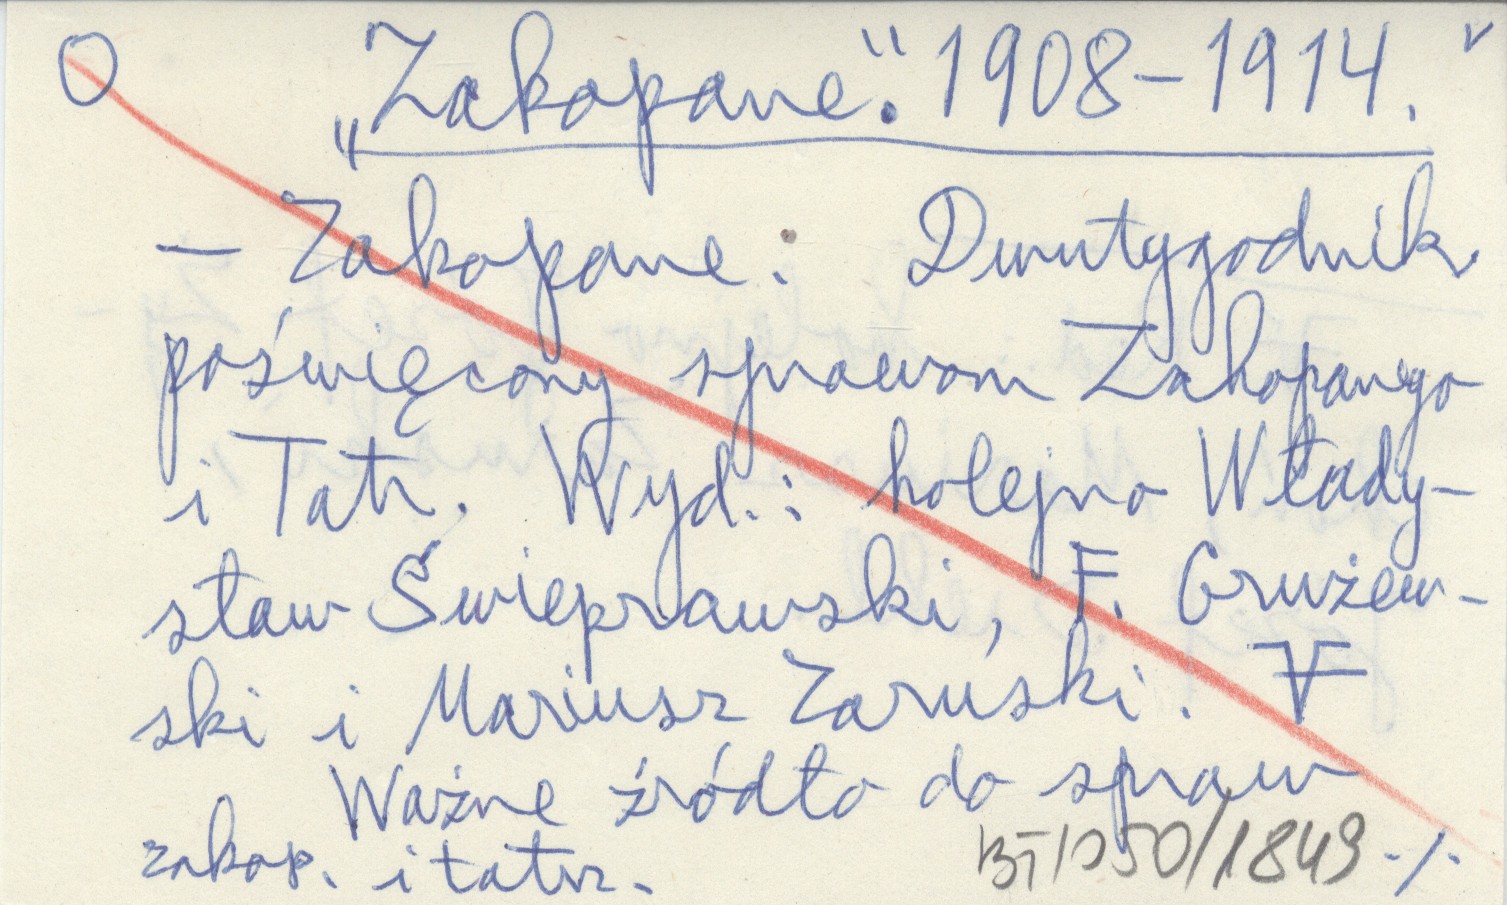 O „Zakopane”. 1908–1914. v
— Zakopane. Dwutygodnik
poświęcony sprawom Zakopanego
i Tatr. Wyd.: kolejno Włady-
sław Świeprawski, F. Grużew-
ski i Mariusz Zaruski.
Ważne źródło do spraw
zakop. i tatrz.
·/·